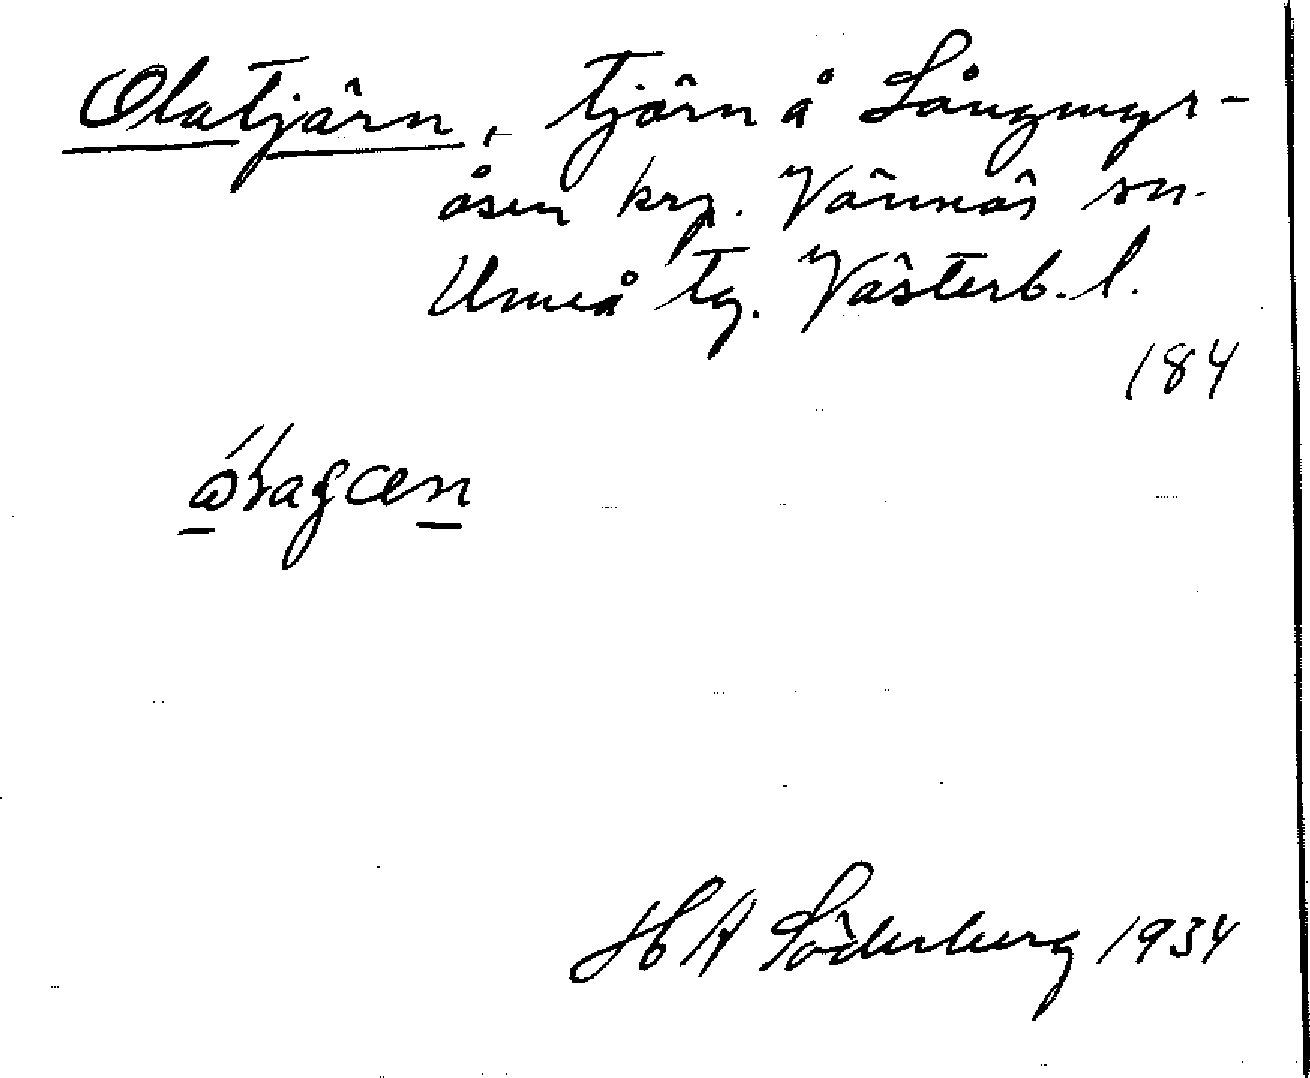 Olatjärn, tjärn å Långmyr-
åsen krp. Vännäs sn.
Umeå tg. Västerb. l.
184
H A Söderberg 1934